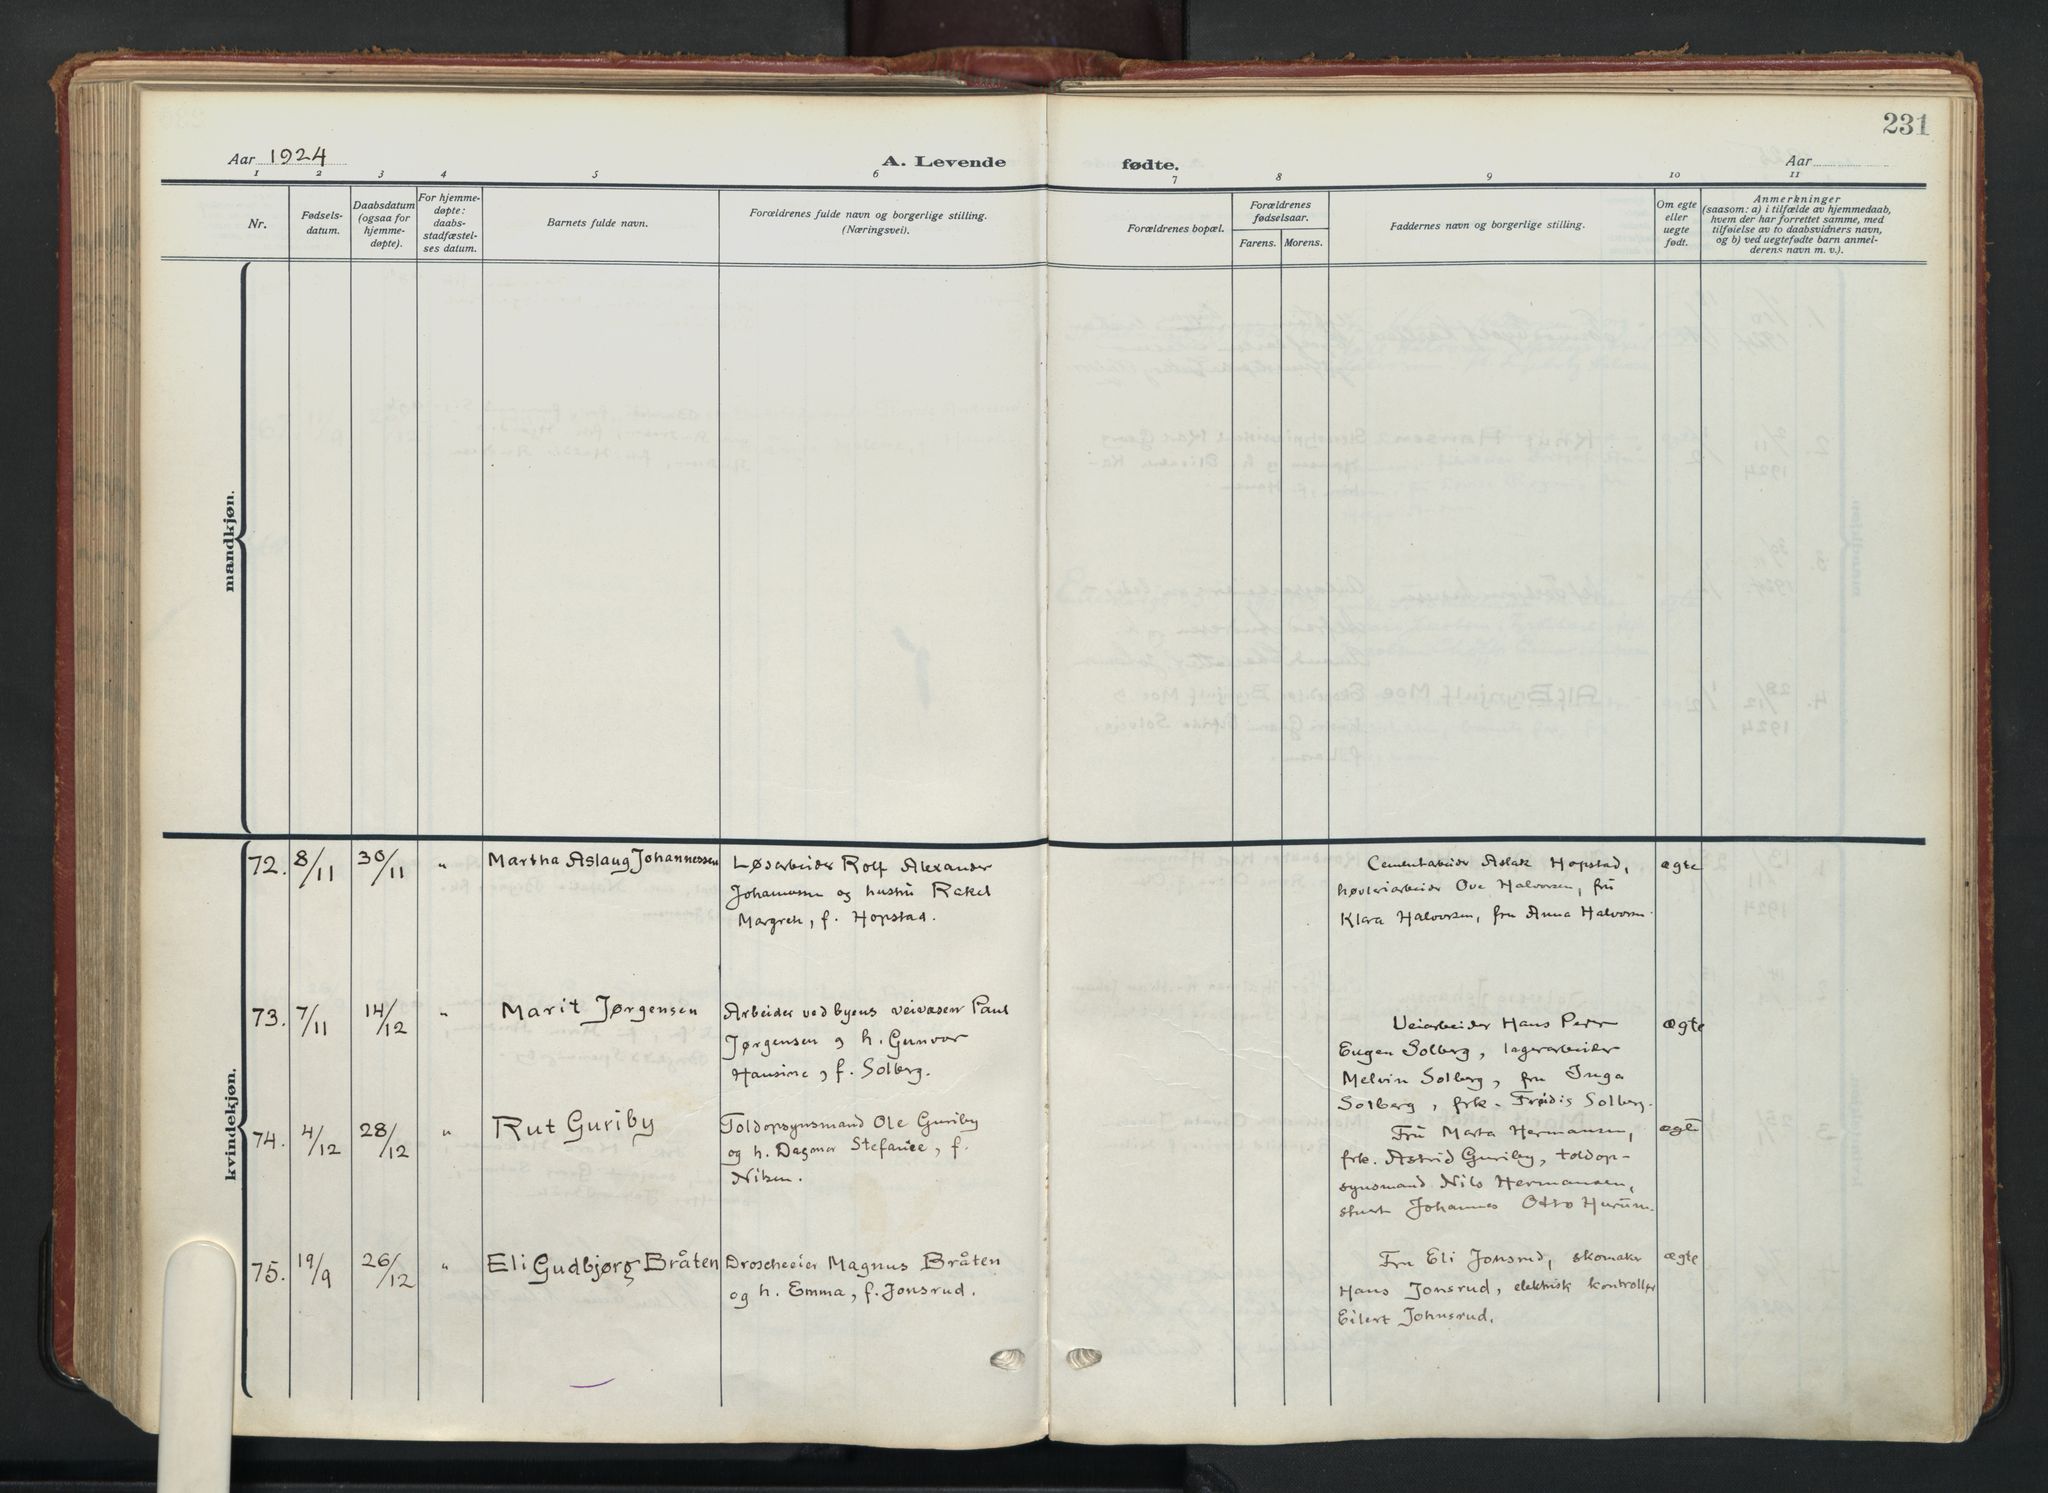 231
Aar 1924
A. Levende fødte.
Aar
1 2 3 4 5 6 7 8 9 10 11
Nr.
Fødsels-
datum.
Daabsdatum
(ogsaa for
hjemme-
døpte).
For hjemme-
døpte:
daabs-
stadfæstel-
ses datum.
Barnets fulde navn.
Forældrenes fulde navn og borgerlige stilling.
(Næringsvei).
Forældrenes bopæl.
Forældrenes
fødselsaar.
Farens. Morens.
Faddernes navn og borgerlige stilling.
Om egte
eller
uegte
født.
Anmerkninger
(saasom: a) i tilfælde av hjemmedaab,
hvem der har forrettet samme, med
tilføielse av to daabsvidners navn,
og b) ved uegtefødte barn anmel-
derens navn m. v.).
mandkjøn.
kvindekjøn.
72. 8/11 30/11 " Martha Aslaug Johannessen
Løsarbeider Rolf Alexander
Johannessen og hustru Rakel
Margreth, f. Hopstad.
Cementarbeider Aslak Hopstad,
høvleriarbeider Ove Halvorsen, fru
Klara Halvorsen, fru Anna Halvorsen.
ægte
73. 7/11 14/12 " Marit Jørgensen
Arbeider ved byens veivæsen Paul
Jørgensen og h. Gunvor
Hansine, f. Solberg.
Veiarbeider Hans Peter
Eugen Solberg, lagerarbeider
Melvin Solberg, fru Inga
Solberg, frk. Frøidis Solberg.
ægte
74. 4/12 28/12 " Rut Guriby
Toldopsynsmand Ole Guriby
og h. Dagmar Stefanie, f.
Nilsen.
Fru Marta Hermansen,
frk. Astrid Guriby, toldop-
synsmand Nils Hermansen,
Johannes Otto Hurum.
ægte
75. 19/9 26/12 " Eli Gudbjørg Bråten
Droscheeier Magnus Bråten
og h. Emma, f. Jonsrud.
Fru Eli Jonsrud, skomaker
Hans Jonsrud, elektrisk kontrollør
Eilert Johnsrud.
ægte